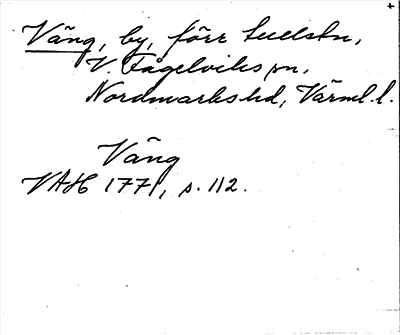 Väng, by, förr Suelstn,
V. Fågelviks sn,
Nordmarks hd, Värml. l.
Väng
VAH 1771, s. 112.